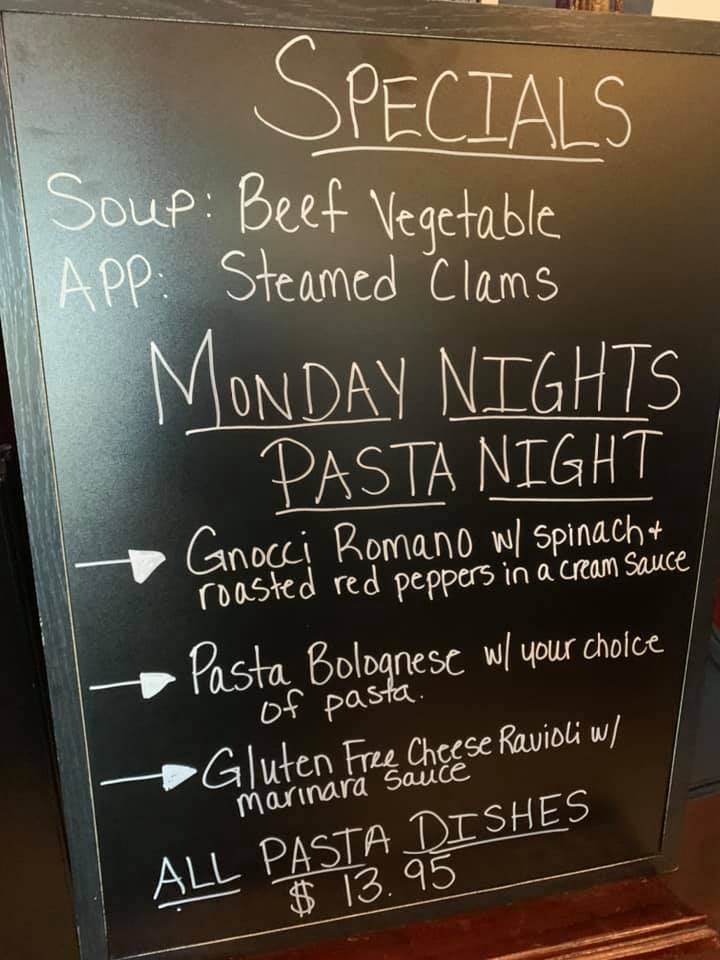 SPECIALS
Soup: Beef Vegetable
APP: Steamed Clams
MONDAY NIGHTS
PASTA NIGHT
Gnocci Romano w/ spinach +
roasted red peppers in a cream sauce
Pasta Bolognese w/ your choice
of pasta.
Gluten Free Cheese Ravioli w/
marinara sauce
ALL PASTA DISHES
$ 13.95